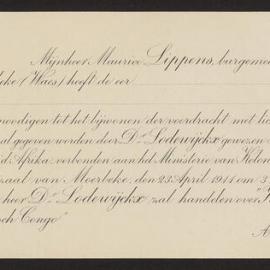 Mijnheer Maurice Lippens, burgeme
eke (Waes) heeft de eer
noodigen tot het bijwonen der voordracht met lic
al gegeven worden door Dr Lodewijckx gewezen
d Afrika, verbonden aan het Ministerie van Kolon
zaal van Moerbeke, den 23 April 1911 om 3
heer Dr Lodewijckx zal handelen over "K
sch Congo"
A